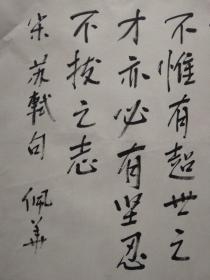 不惟有超世之
才亦必有坚忍
不拔之志
宋苏轼句 佩华